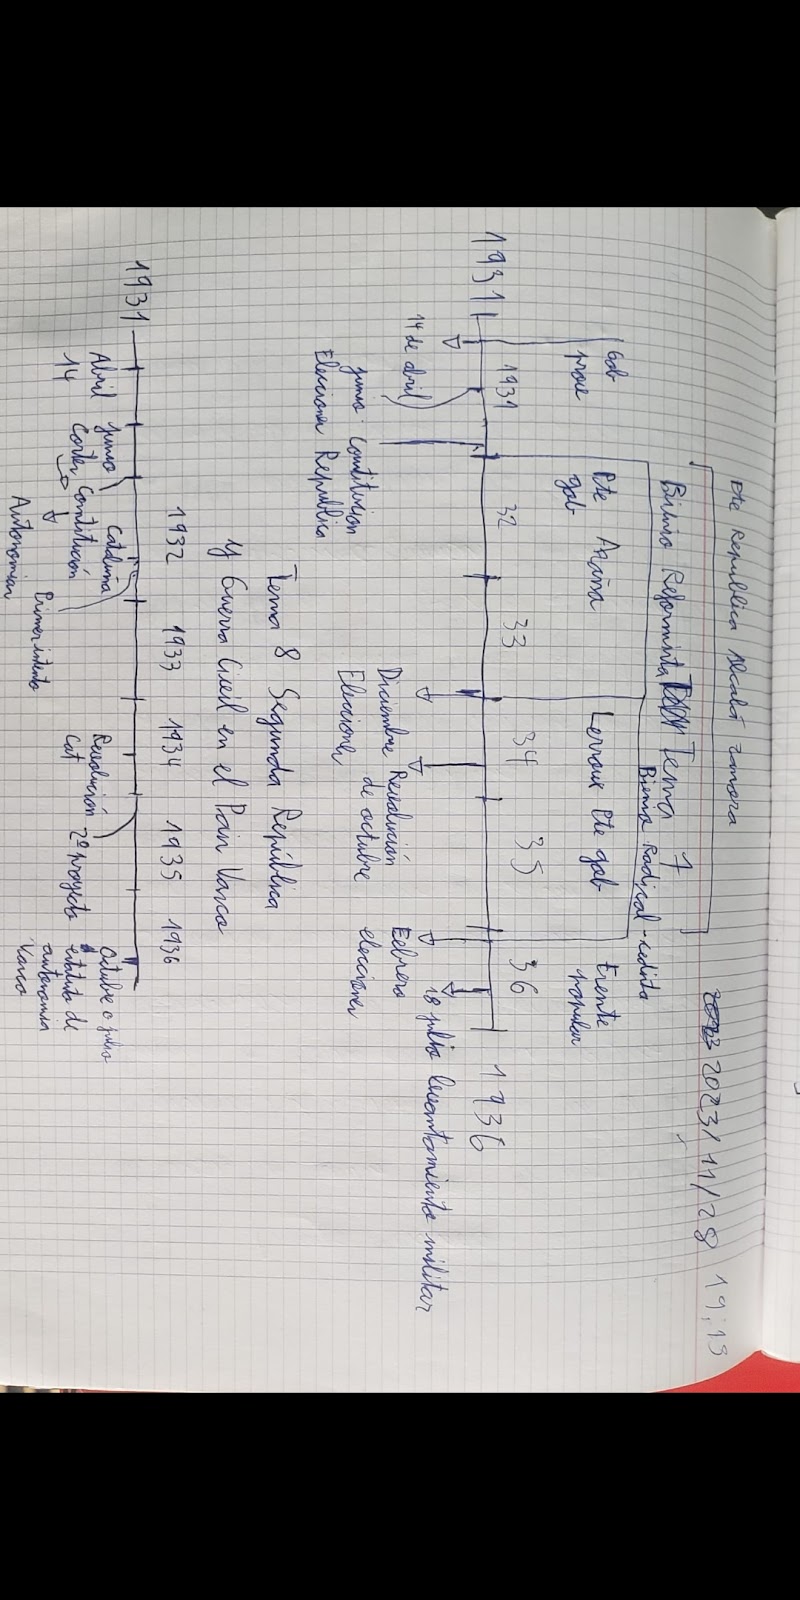 Pte Republica Alcalá Zamora
2023/11/28 19:13
Bienio Reformista Tema 7
Bienio Radical-cedista
Gob prov
Pte Azaña gob
Lerroux Pte gob
Frente popular
1931 1931 32 33 34 35 36 1936
14 de abril
junio Constitucion
Elecciones Republica
Diciembre
Elecciones
Revolución de octubre
Febrero elecciones
18 julio levantamiento militar
Tema 8 Segunda República
y Guerra Civil en el País Vasco
1931 1932 1933 1934 1935 1936
Abril 14
junio Cortes
Constitución
Autonomías
Cataluña
Primer intento
Revolución Cat
2º proyecto
Octubre o julio
estatuto de autonomia Vasco